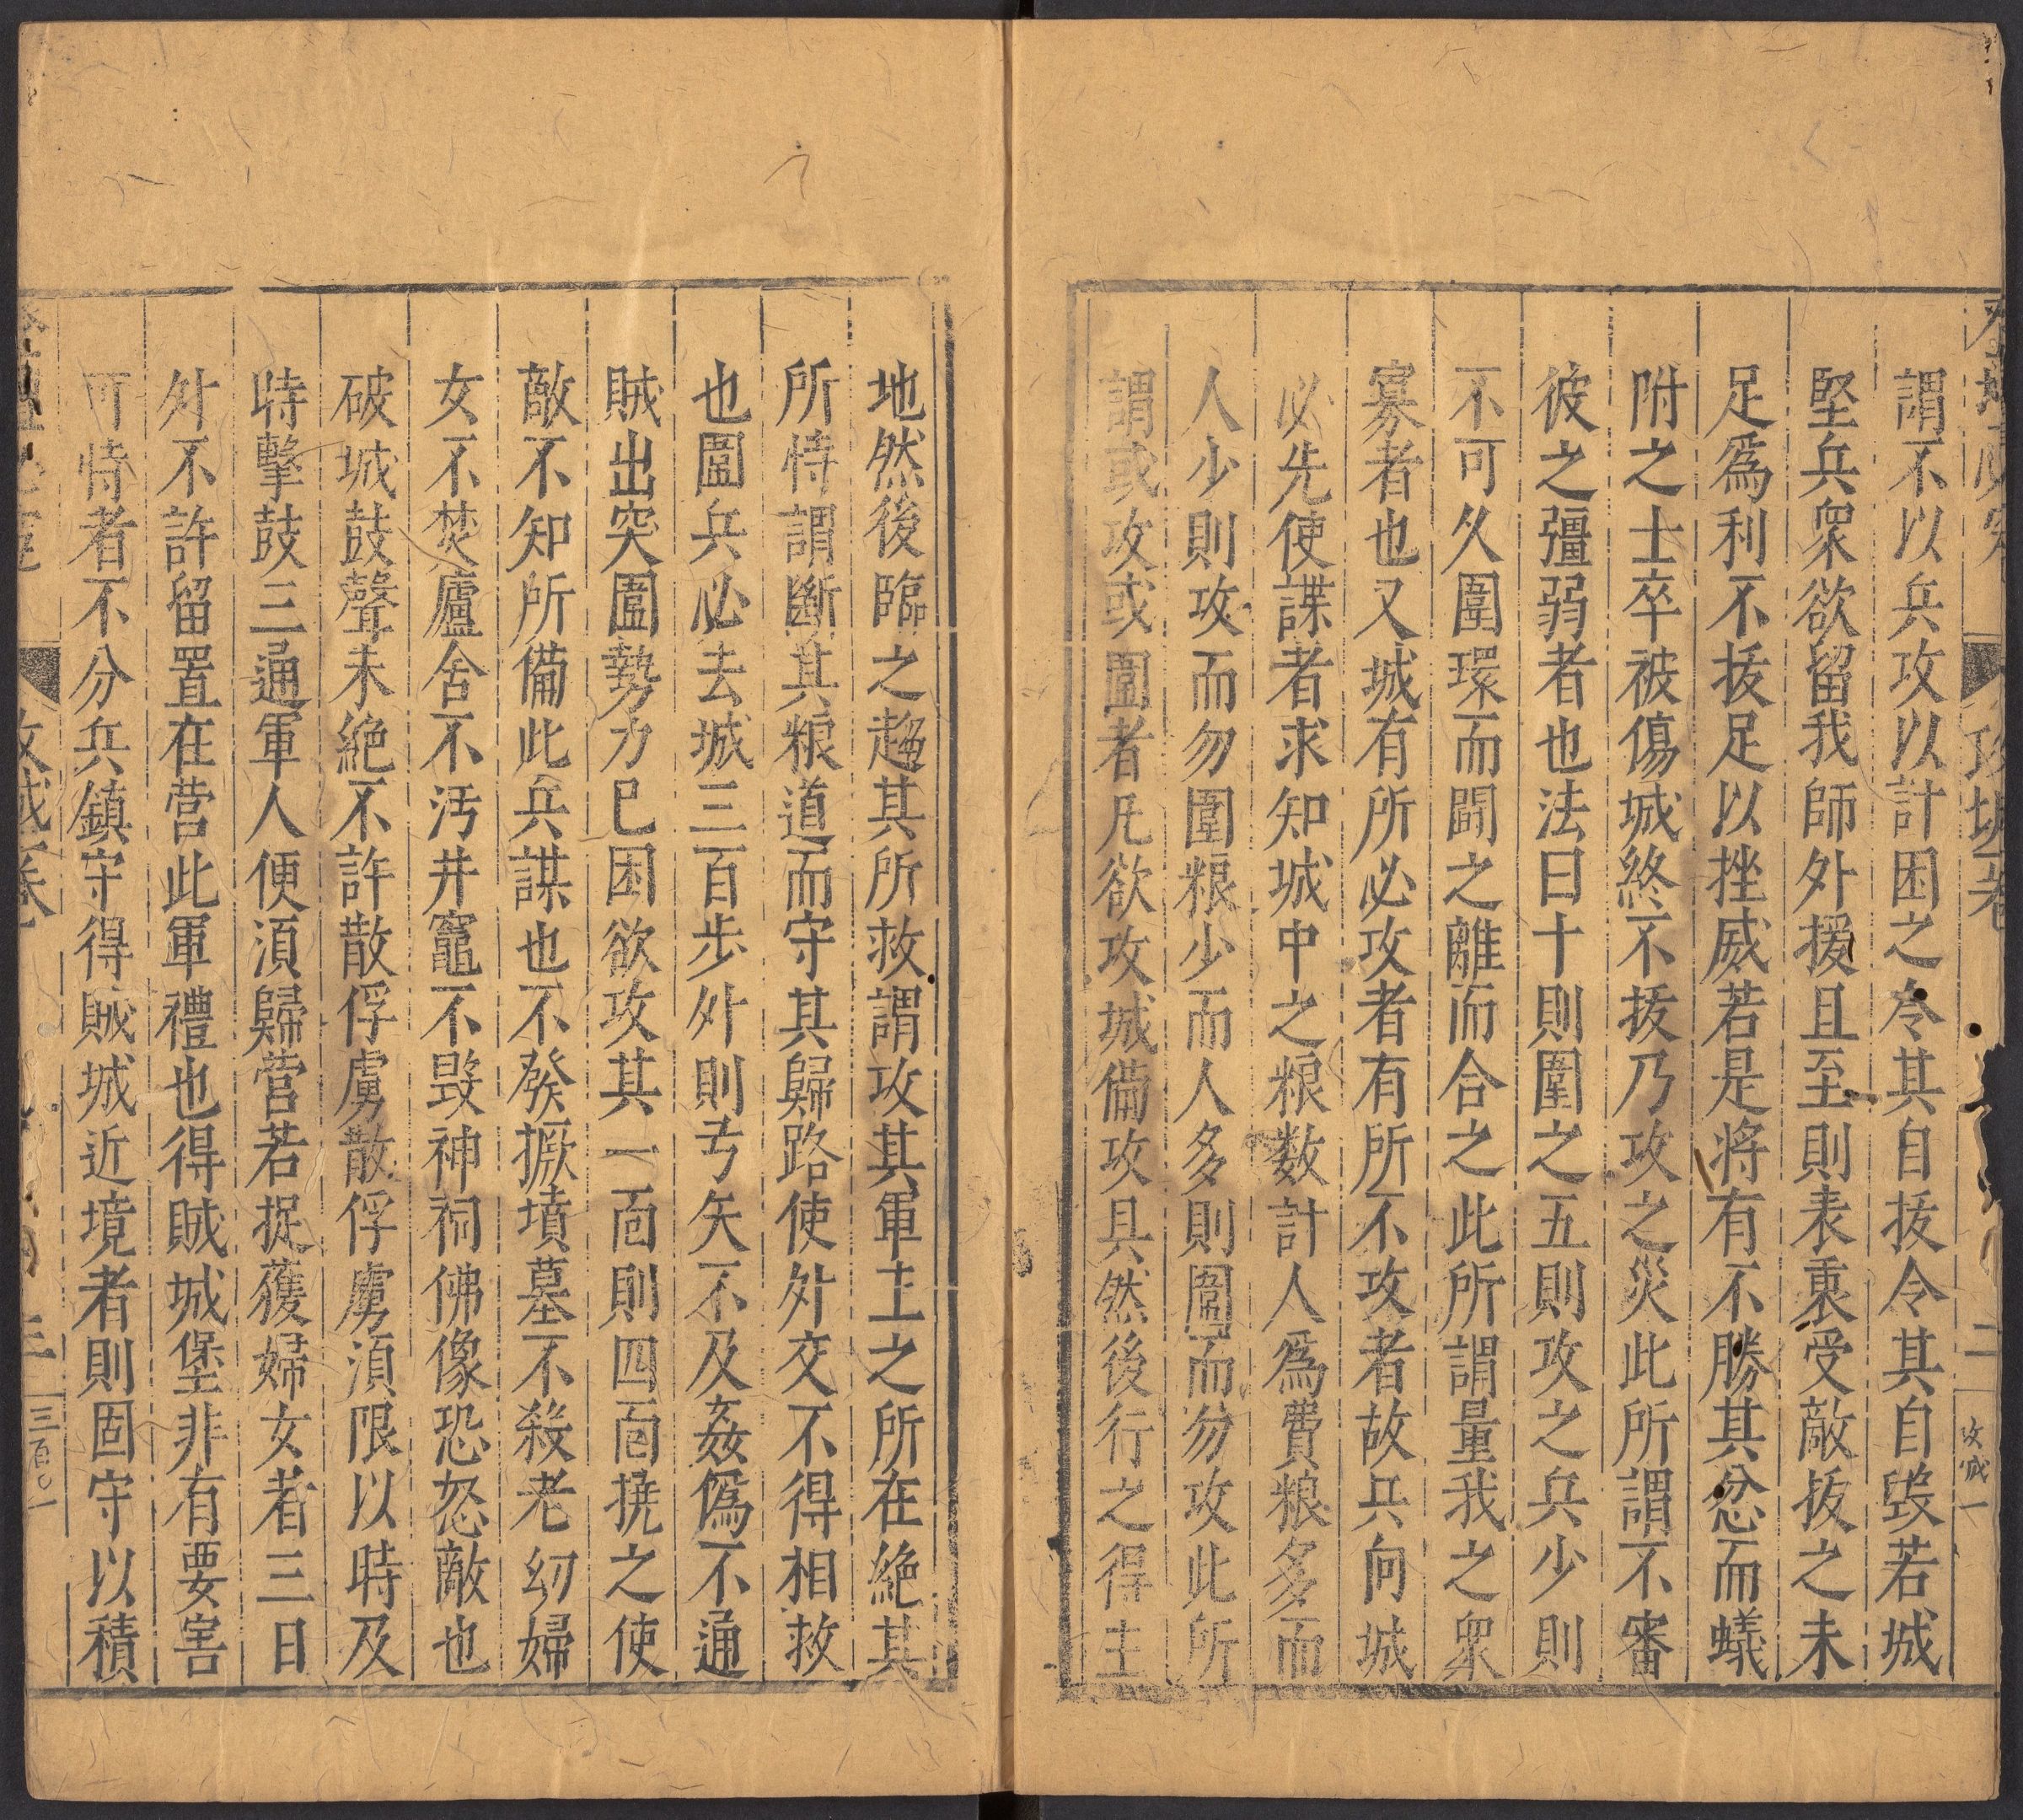 謂不以兵攻以計困之令其自拔令其自毀若城
堅兵衆欲留我師外援且至則表裏受敵拔之未
足爲利不拔足以挫威若是將有不勝其忿而蟻
附之士卒被傷城終不拔乃攻之災此所謂不審
彼之彊弱者也法曰十則圍之五則攻之兵少則
不可久圍環而鬪之離而合之此所謂量我之衆
寡者也又城有所必攻者有所不攻者故兵向城
必先使諜者求知城中之粮数計人爲費粮多而
人少則攻而勿圍粮少而人多則圍而勿攻此所
謂或攻或圍者凡欲攻城備攻具然後行之得主
攻城一
二
地然後臨之趨其所救謂攻其軍主之所在絶其
所恃謂斷其粮道而守其歸路使外交不得相救
也圍兵必去城三百步外則弓矢不及姦僞不通
賊出突圍勢力已困欲攻其一面則四面撓之使
敵不知所備此兵謀也不發掘墳墓不殺老幼婦
女不焚廬舍不污井竈不毀神祠佛像恐怒敵也
破城鼓聲未絶不許散俘虜散俘虜須限以時及
時擊鼓三通軍人便須歸營若捉獲婦女者三日
外不許留置在營此軍禮也得賊城堡非有要害
可恃者不分兵鎮守得賊城近境者則固守以積
三
三百〇一